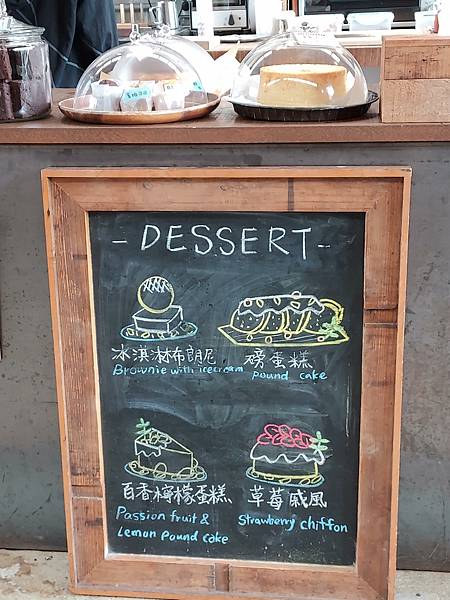 - DESSERT -
冰淇淋布朗尼
Brownie with icecream
磅蛋糕
pound cake
百香檸檬蛋糕
Passion fruit &
Lemon pound cake
草莓戚風
Strawberry chiffon